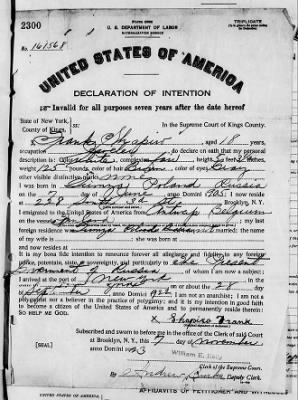 2300
STATE COPY
TRIPLICATE
U. S. DEPARTMENT OF LABOR
NATURALIZATION SERVICE
No. 161568
UNITED STATES OF AMERICA
DECLARATION OF INTENTION
Invalid for all purposes seven years after the date hereof
State of New York,
County of Kings,
In the Supreme Court of Kings County.
I, Frank Shapiro, aged 18 years,
occupation do declare on oath that my personal
description is: Color white, complexion fair, height 5 feet inches,
weight 125 pounds, color of hair Brown, color of eyes Gray
other visible distinctive marks none
I was born in Poland Russia
on the day of June, anno Domini 1905; I now reside
at 228 South 3rd St. Brooklyn, N. Y.
I emigrated to the United States of America from Antwerp Belgium
on the vessel; my last
foreign residence was
; the name of my wife is ; she was born at
and now resides at
It is my bona fide intention to renounce forever all allegiance and fidelity to any foreign
prince, potentate, state, or sovereignty, and particularly to the Present
Government of Russia of whom I am now a subject;
I arrived at the port of New York, in the
State of New York on or about the 28 day
of September, anno Domini 1922; I am not an anarchist; I am not a
polygamist nor a believer in the practice of polygamy; and it is my intention in good faith
to become a citizen of the United States of America and to permanently reside therein:
SO HELP ME GOD.
X Shapiro Frank
Subscribed and sworn to before me in the office of the Clerk of said Court
at Brooklyn, N. Y., this 7 day of November
anno Domini 1923
[SEAL]
William E. Kelly
Clerk of the Supreme Court.
By Deputy Clerk.
AFFIDAVITS OF PETITIONER AND
UNITED STATES OF AMERICA